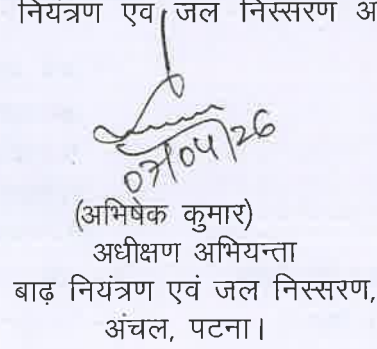 नियंत्रण एवं जल निस्सरण अ
07/04/26
(अभिषेक कुमार)
अधीक्षण अभियन्ता
बाढ़ नियंत्रण एवं जल निस्सरण,
अंचल, पटना।